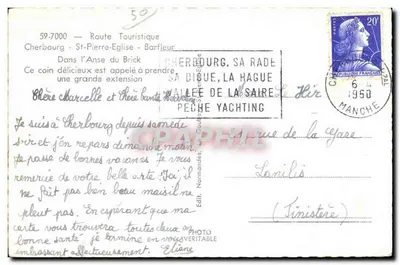 50
59-7000 - Route Touristique
Cherbourg - St-Pierre-Eglise - Barfleur
Dans l'Anse du Brick
Ce coin délicieux est appelé à prendre
une grande extension
CHERBOURG, SA RADE
SA DIGUE, LA HAGUE
LÉE DE LA SAIRE
PÊCHE YACHTING
20F
6
1960
MANCHE
Chère Marcelle et Chère tante
Je suis à Cherbourg depuis samedi
soir et j'en repars demain
Je passe de bonnes vacances Je vous
remercie de votre belle carte J'ai il
ne fait pas bien beau mais il ne
pleut pas. En espérant que ma
carte vous trouvera toutes deux en
bonne santé je termine en vous
embrassant affectueusement. Eliane
Le Hir
rue de la gare
Lanilis
(Finistère)
Edit. Normandes
PHOTO
VERITABLE